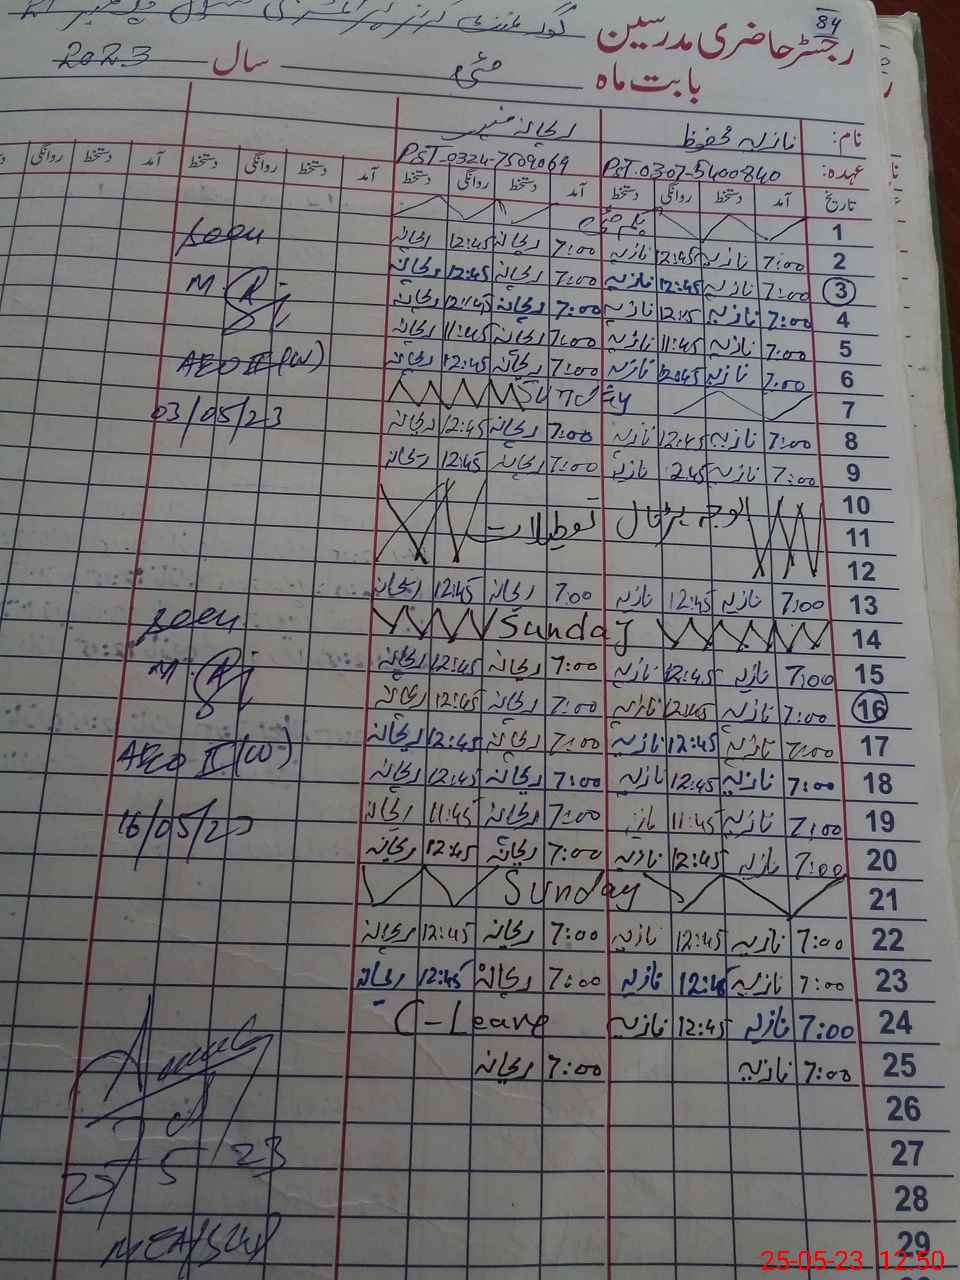 84
رجسٹر حاضری مدرسین
بابت ماہ مئی سال 2023
نام: نازیہ محفوظ ریحانہ منیر
عہدہ: PST-0307-5400840 PST-0324-7509069
تاریخ آمد دستخط روانگی دستخط آمد دستخط روانگی دستخط آمد دستخط روانگی دستخط آمد دستخط روانگی
1 یکم مئی
2 7:00 نازیہ 12:45 نازیہ 7:00 ریحانہ 12:45 ریحانہ
3 7:00 نازیہ 12:45 نازیہ 7:00 ریحانہ 12:45 ریحانہ
4 7:00 نازیہ 12:45 نازیہ 7:00 ریحانہ 12:45 ریحانہ
5 7:00 نازیہ 11:45 نازیہ 7:00 ریحانہ 11:45 ریحانہ
6 7:00 نازیہ 12:45 نازیہ 7:00 ریحانہ 12:45 ریحانہ
7 Sunday
8 7:00 نازیہ 12:45 نازیہ 7:00 ریحانہ 12:45 ریحانہ
9 7:00 نازیہ 12:45 نازیہ 7:00 ریحانہ 12:45 ریحانہ
10
11 بوجہ ہڑتال تعطیلات
12
13 7:00 نازیہ 12:45 نازیہ 7:00 ریحانہ 12:45 ریحانہ
14 Sunday
15 7:00 نازیہ 12:45 نازیہ 7:00 ریحانہ 12:45 ریحانہ
16 7:00 نازیہ 12:45 نازیہ 7:00 ریحانہ 12:45 ریحانہ
17 7:00 نازیہ 12:45 نازیہ 7:00 ریحانہ 12:45 ریحانہ
18 7:00 نازیہ 12:45 نازیہ 7:00 ریحانہ 12:45 ریحانہ
19 7:00 نازیہ 11:45 نازیہ 7:00 ریحانہ 11:45 ریحانہ
20 7:00 نازیہ 12:45 نازیہ 7:00 ریحانہ 12:45 ریحانہ
21 Sunday
22 7:00 نازیہ 12:45 نازیہ 7:00 ریحانہ 12:45 ریحانہ
23 7:00 نازیہ 12:45 نازیہ 7:00 ریحانہ 12:45 ریحانہ
24 7:00 نازیہ 12:45 نازیہ C-Leave
25 7:00 نازیہ 7:00 ریحانہ
26
27
28
29
Seen
AEO II (W)
03/05/23
Seen
AEO II (W)
16/05/23
25 5 23
MEA/
25-05-23 12:50